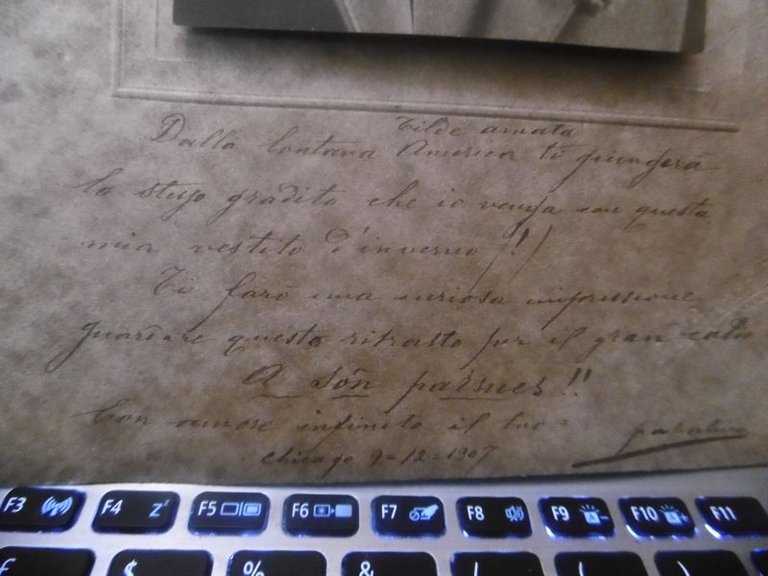 Tilde amata
Dalla lontana America ti giungerà
lo stesso gradito che io venga con questa
mia vestito d'inverno (!!)
Ti farà una curiosa impressione
guardare questo ritratto per il gran
A Són !!
Con amore infinito il tuo
Chicago 9=12=1907
F3 F4 Z F5 F6 F7 F8 F9 F10 F11
£ $ % & ( )